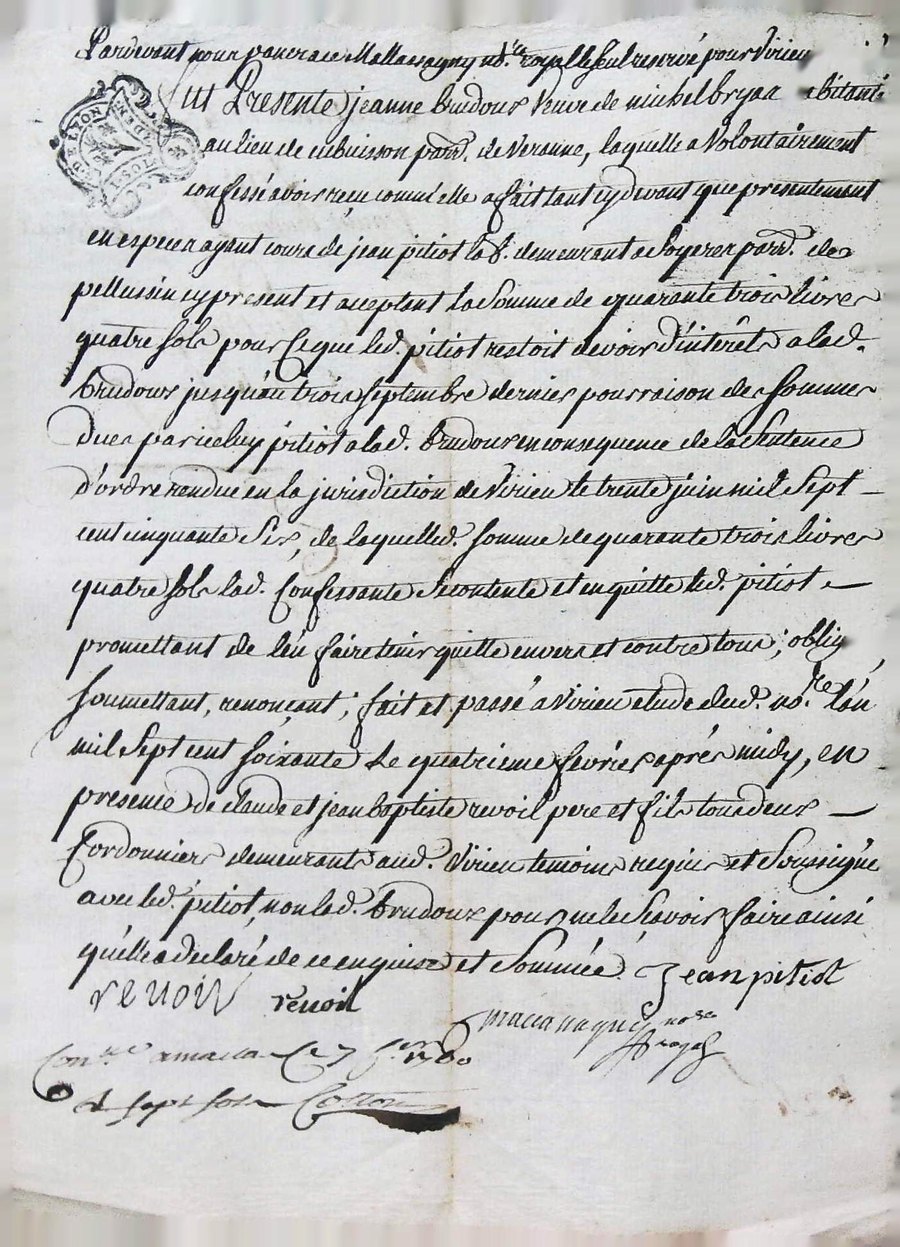 Pardevant nous pancrace Mallassagny no.re royal seul reservé pour Virieu
LYON
fut Presente jeanne brudoux Veuve de michel bryaa abitante
au lieu de cubuisson parr. de Veranne, laquelle a Volontairement
confessé avoir reçu comm'elle a fait tant cy devant que presentement
en especes ayant cours de jean pitiot lab. demeurant a Soyeres parr. de
pellussin cy present et aceptant la Somme de quarante trois livres
quatre sols pour Ce que led. pitiot restoit devoir d'interêts a lad.
brudoux jusqu'au trois septembre dernier pour raison des Sommes
dues par iceluy pitiot a lad. brudoux en consequence de la Sentence
d'ordre rendue en la jurisdiction de Virieu le trente juin mil Sept
cent cinquante Six, de laquelle d. somme de quarante trois livres
quatre sols lad. Confessante Se contente et en quitte led. pitiot
promettant de l'en faire tenir quitte envers et contre tous; oblig
soumettant, renonçant; fait et passé a Virieu etude dud. no.re l'an
mil Sept cent soixante le quatrieme fevrier après midy, en
presence de claude et jean baptiste revoil pere et fils tous deux
Cordonniers demeurants aud. Virieu temoins requis et Soussigné
avec led. pitiot, non lad. brudoux pour ne le Sçavoir faire ainsi
qu'elle a declaré de ce enquise et Sommée Jean pitiot
revoil revoil
no.re
royal
Con.lé a maclas Ce 7 f.er 1760
R sept sols